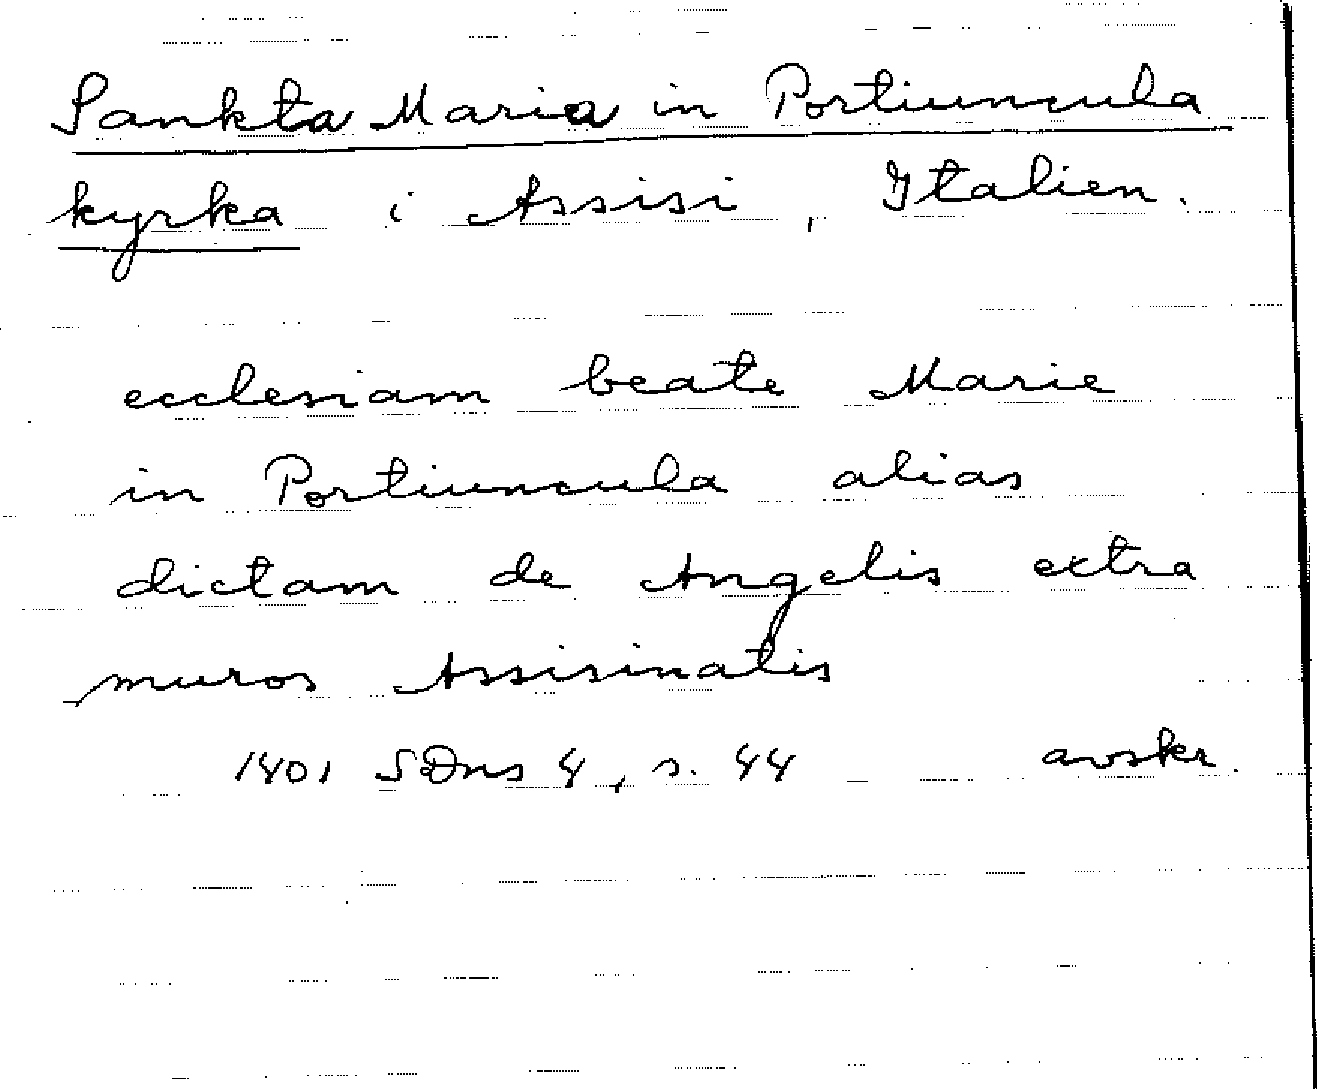 Sankta Maria in Portiuncula
kyrka i Assisi, Italien.
ecclesiam beate Marie
in Portiuncula alias
dictam de Angelis extra
muros Assisinatis
1401 SDns 4, s. 44 avskr.